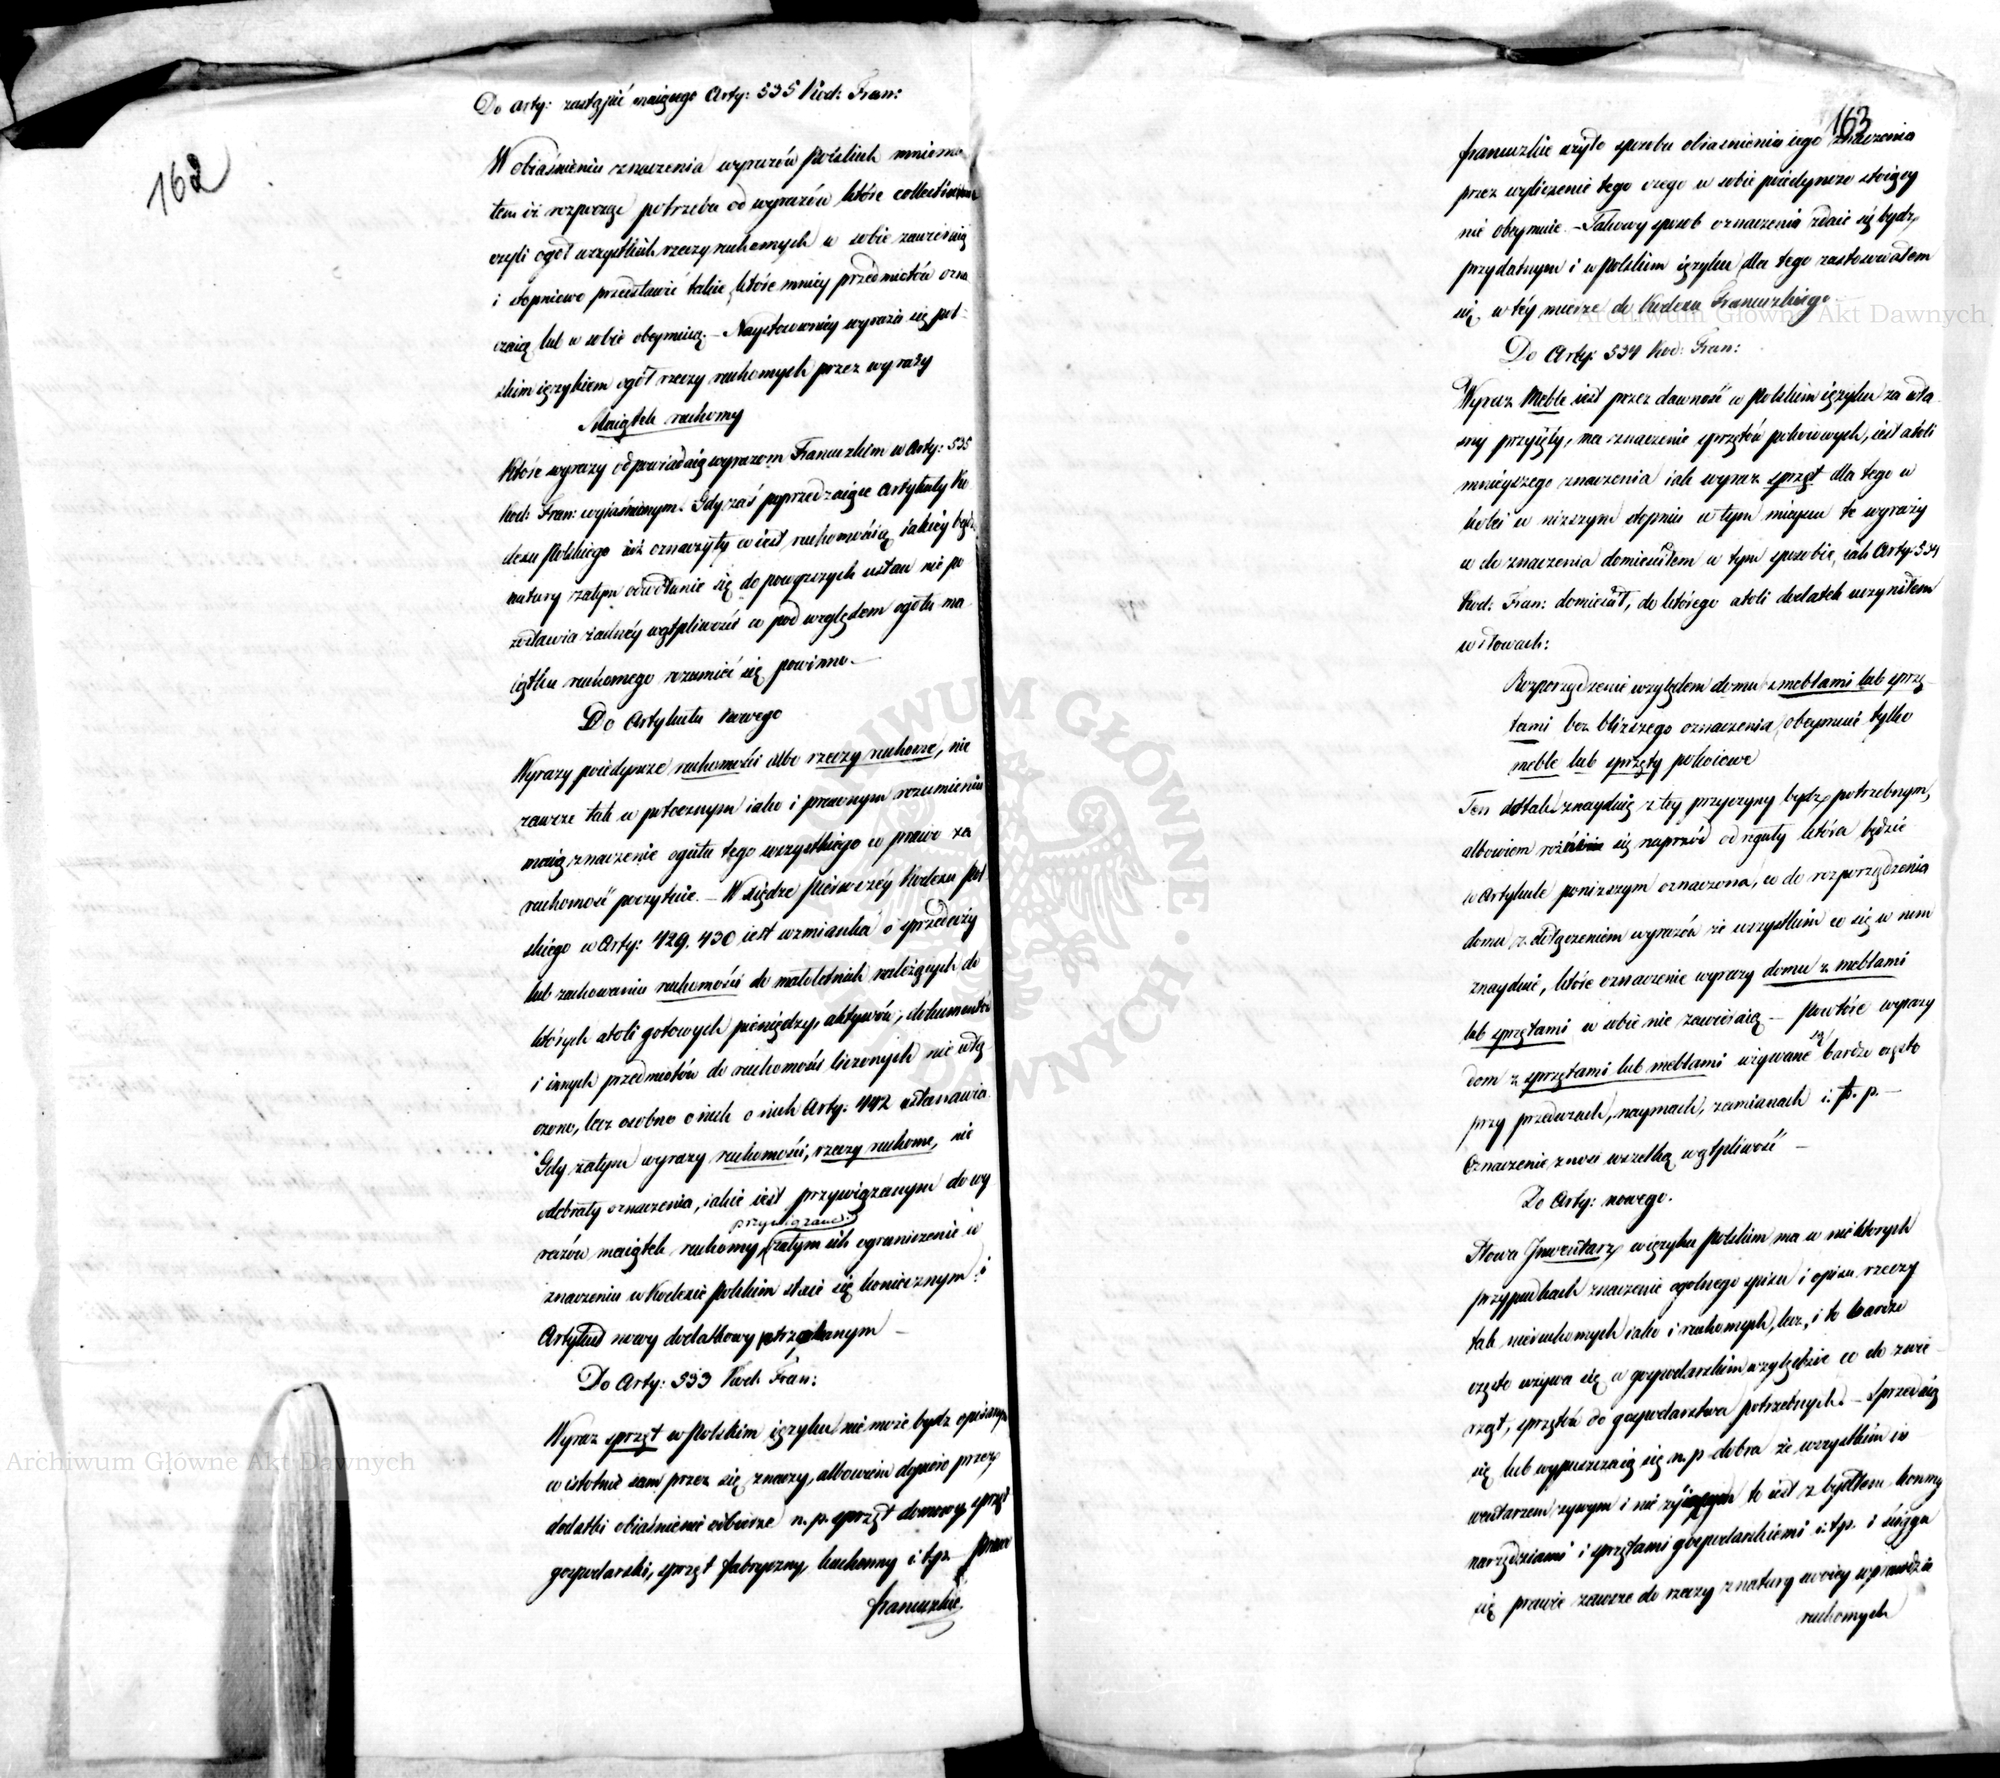 162
Do arty: zastąpić maiącego Arty: 535 Kod: Fran:
W obiaśnieniu znaczenia wyrazów Polskich mniema
tem iż rozpocząć potrzeba od wyrazów które collectivum
czyli ogół wszystkich rzeczy ruchomych w sobie zawieraią
i stopniowo przedstawić takie, które mniey przedmiotów ozna
czaią, lub w sobie obeymuią. – Naystosowniey wyraża się pol-
skim ięzykiem ogół rzeczy ruchomych przez wyrazy
Maiątek ruchomy
Które wyrazy odpowiadaią wyrazom Francuzkim w Arty: 535
Kod: Fran: wyiaśnionym. Gdy zaś poprzedzaiące Artykuły Ko
dexu Polskiego iuż oznaczyły co iest ruchomością iakiey bądź
natury zatym odwołanie się do powyższych ustaw nie po
zostawia żadney wątpliwości co pod względem ogółu ma
iątku ruchomego rozumieć się powinno. –
Do Artykułu Nowego
Wyrazy poiedyncze ruchomości albo rzeczy ruchome, nie
zawsze tak w potocznym iako i prawnym rozumieniu
maią znaczenie ogółu tego wszystkiego co prawo za
ruchomość poczytuie. – W Xiędze Pierwszéy Kodexu Pol
skiego w Arty: 429. 430 iest wzmianka o sprzedaży
lub zachowaniu ruchomości do małoletnich należących do
których atoli gotowych pieniędzy, aktywów, dokumentów
i innych przedmiotów do ruchomości liczonych nie włą
czono, lecz osobno o nich Arty: 442 ustanawia
Gdy zatym wyrazy ruchomości, rzeczy ruchome, nie
odebrały oznaczenia, iakie iest przywiązanym do wy
przywiązane
razów maiątek ruchomy, zatym ich ograniczenie w
znaczeniu w Kodexie Polskim staie się koniecznym i
Artykuł nowy dodatkowy potrzebnym –
Do Arty: 533 Kod: Fran:
Wyraz sprzęt w Polskim ięzyku nie może bydz opisanym
co istotnie sam przez się znaczy, albowiem dopiero przez
dodatki obiaśnienie odbierze n. p. sprzęt domowy, sprzęt
gospodarski, sprzęt fabryczny, kuchenny i. t. p. – Prawo
francuzkie
163
francuzkie użyło sposobu obiaśnienia iego znaczenia
przez wyliczenie tego czego w sobie poiedynczo stoiący
nie obeymuie. – Takowy sposób oznaczenia zdaie się bydz
przydatnym i w Polskim ięzyku dla tego zastosowałem
się w téy mierze do Kodexu Francuzkiego
Do Arty: 534 Kod: Fran:
Wyraz Meble iest przez dawność w Polskim ięzyku za wła
sny przyięty, ma znaczenie sprzętów pokoiowych, iest atoli
mnieyszego znaczenia iak wyraz sprzęt dla tego w
kolei w niższym stopniu w tym mieyscu te wyrazy
co do znaczenia domieściłem w tym sposobie, iak Arty: 534
Kod: Fran: domieścił, do którego atoli dodatek uczyniłem
w słowach:
Rozporządzenie względem domu z meblami lub sprzę-
tami bez bliższego oznaczenia obeymuie tylko
meble lub sprzęty pokoiowe
Ten dodatek znayduię z tey przyczyny bydz potrzebnym,
albowiem różni się naprzód od reguły która będzie
w Artykule poniższym oznaczona, co do rozporządzenia
domu z dołączeniem wyrazów ze wszystkim co się w nim
znayduie, które oznaczenie wyrazy domu z meblami
lub sprzętami w sobie nie zawieraią – Powtóre wyrazy
są
dom z sprzętami lub meblami używane bardzo często
przy przedażach, naymach, zamianach i. t. p. –
Oznaczenie znosi wszelką wątpliwość –
Do Arty: nowego.
Słowo Inwentarz w ięzyku Polskim ma w niektórych
przypadkach znaczenie ogólnego spisu i opisu rzeczy
tak nieruchomych iako i ruchomych, lecz, i to bardzo
często używa się w gospodarskim względzie co do zwie
rząt, sprzętów do gospodarstwa potrzebnych. – Sprzedaią
się lub wypuszczaią się n. p. dobra ze wszystkim in
wentarzem żywym i nie żyiącym to iest z bydłem końmi
narzędziami i sprzętami gospodarskiemi i. t. p. i ściąga
się prawie zawsze do rzeczy z natury swoiey wprawdzie
ruchomych
Archiwum Główne Akt Dawnych
Archiwum Główne Akt Dawnych
ARCHIWUM GŁÓWNE AKT DAWNYCH